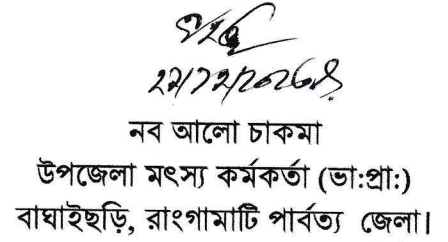 নব আলো চাকমা
উপজেলা মৎস্য কর্মকর্তা (ভা:প্রা:)
বাঘাইছড়ি, রাংগামাটি পার্বত্য জেলা।